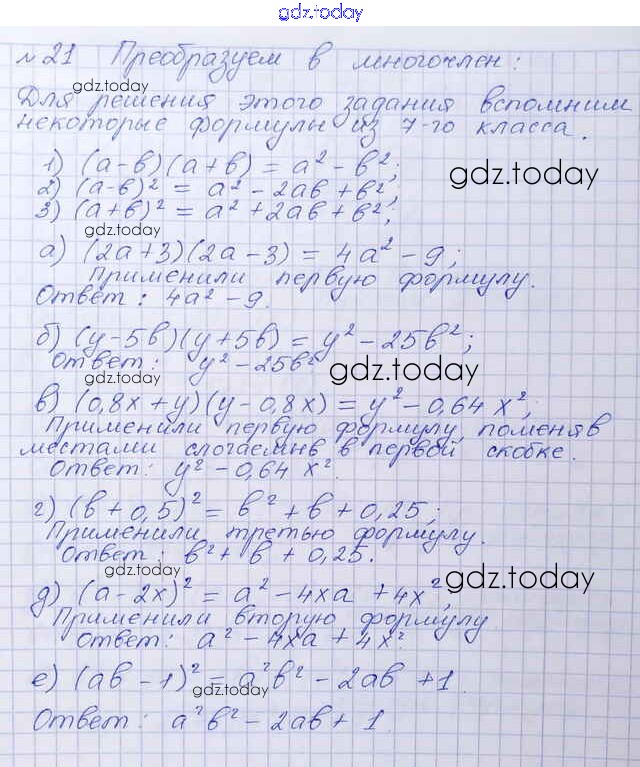 gdz.today
№21 Преобразуем в многочлен:
gdz.today
Для решения этого задания вспомним
некоторые формулы из 7-го класса.
1) (а-в)(а+в) = а² - в²;
gdz.today
2) (а-в)² = а² - 2ав + в²;
3) (а+в)² = а² + 2ав + в²;
gdz.today
а) (2а+3)(2а-3) = 4а² - 9;
Применили первую формулу.
Ответ: 4а² - 9.
б) (у-5в)(у+5в) = у² - 25в²;
Ответ: у² - 25в²
gdz.today
gdz.today
в) (0,8х + у)(у - 0,8х) = у² - 0,64 х²;
Применили первую формулу, поменяв
местами слогаемые в первой скобке.
Ответ: у² - 0,64 х².
г) (в + 0,5)² = в² + в + 0,25;
Применили третью формулу.
Ответ: в² + в + 0,25.
gdz.today
gdz.today
д) (а - 2х)² = а² - 4ха + 4х²;
Применили вторую формулу
Ответ: а² - 4ха + 4х².
е) (ав - 1)² = а²в² - 2ав + 1.
gdz.today
Ответ: а²в² - 2ав + 1.